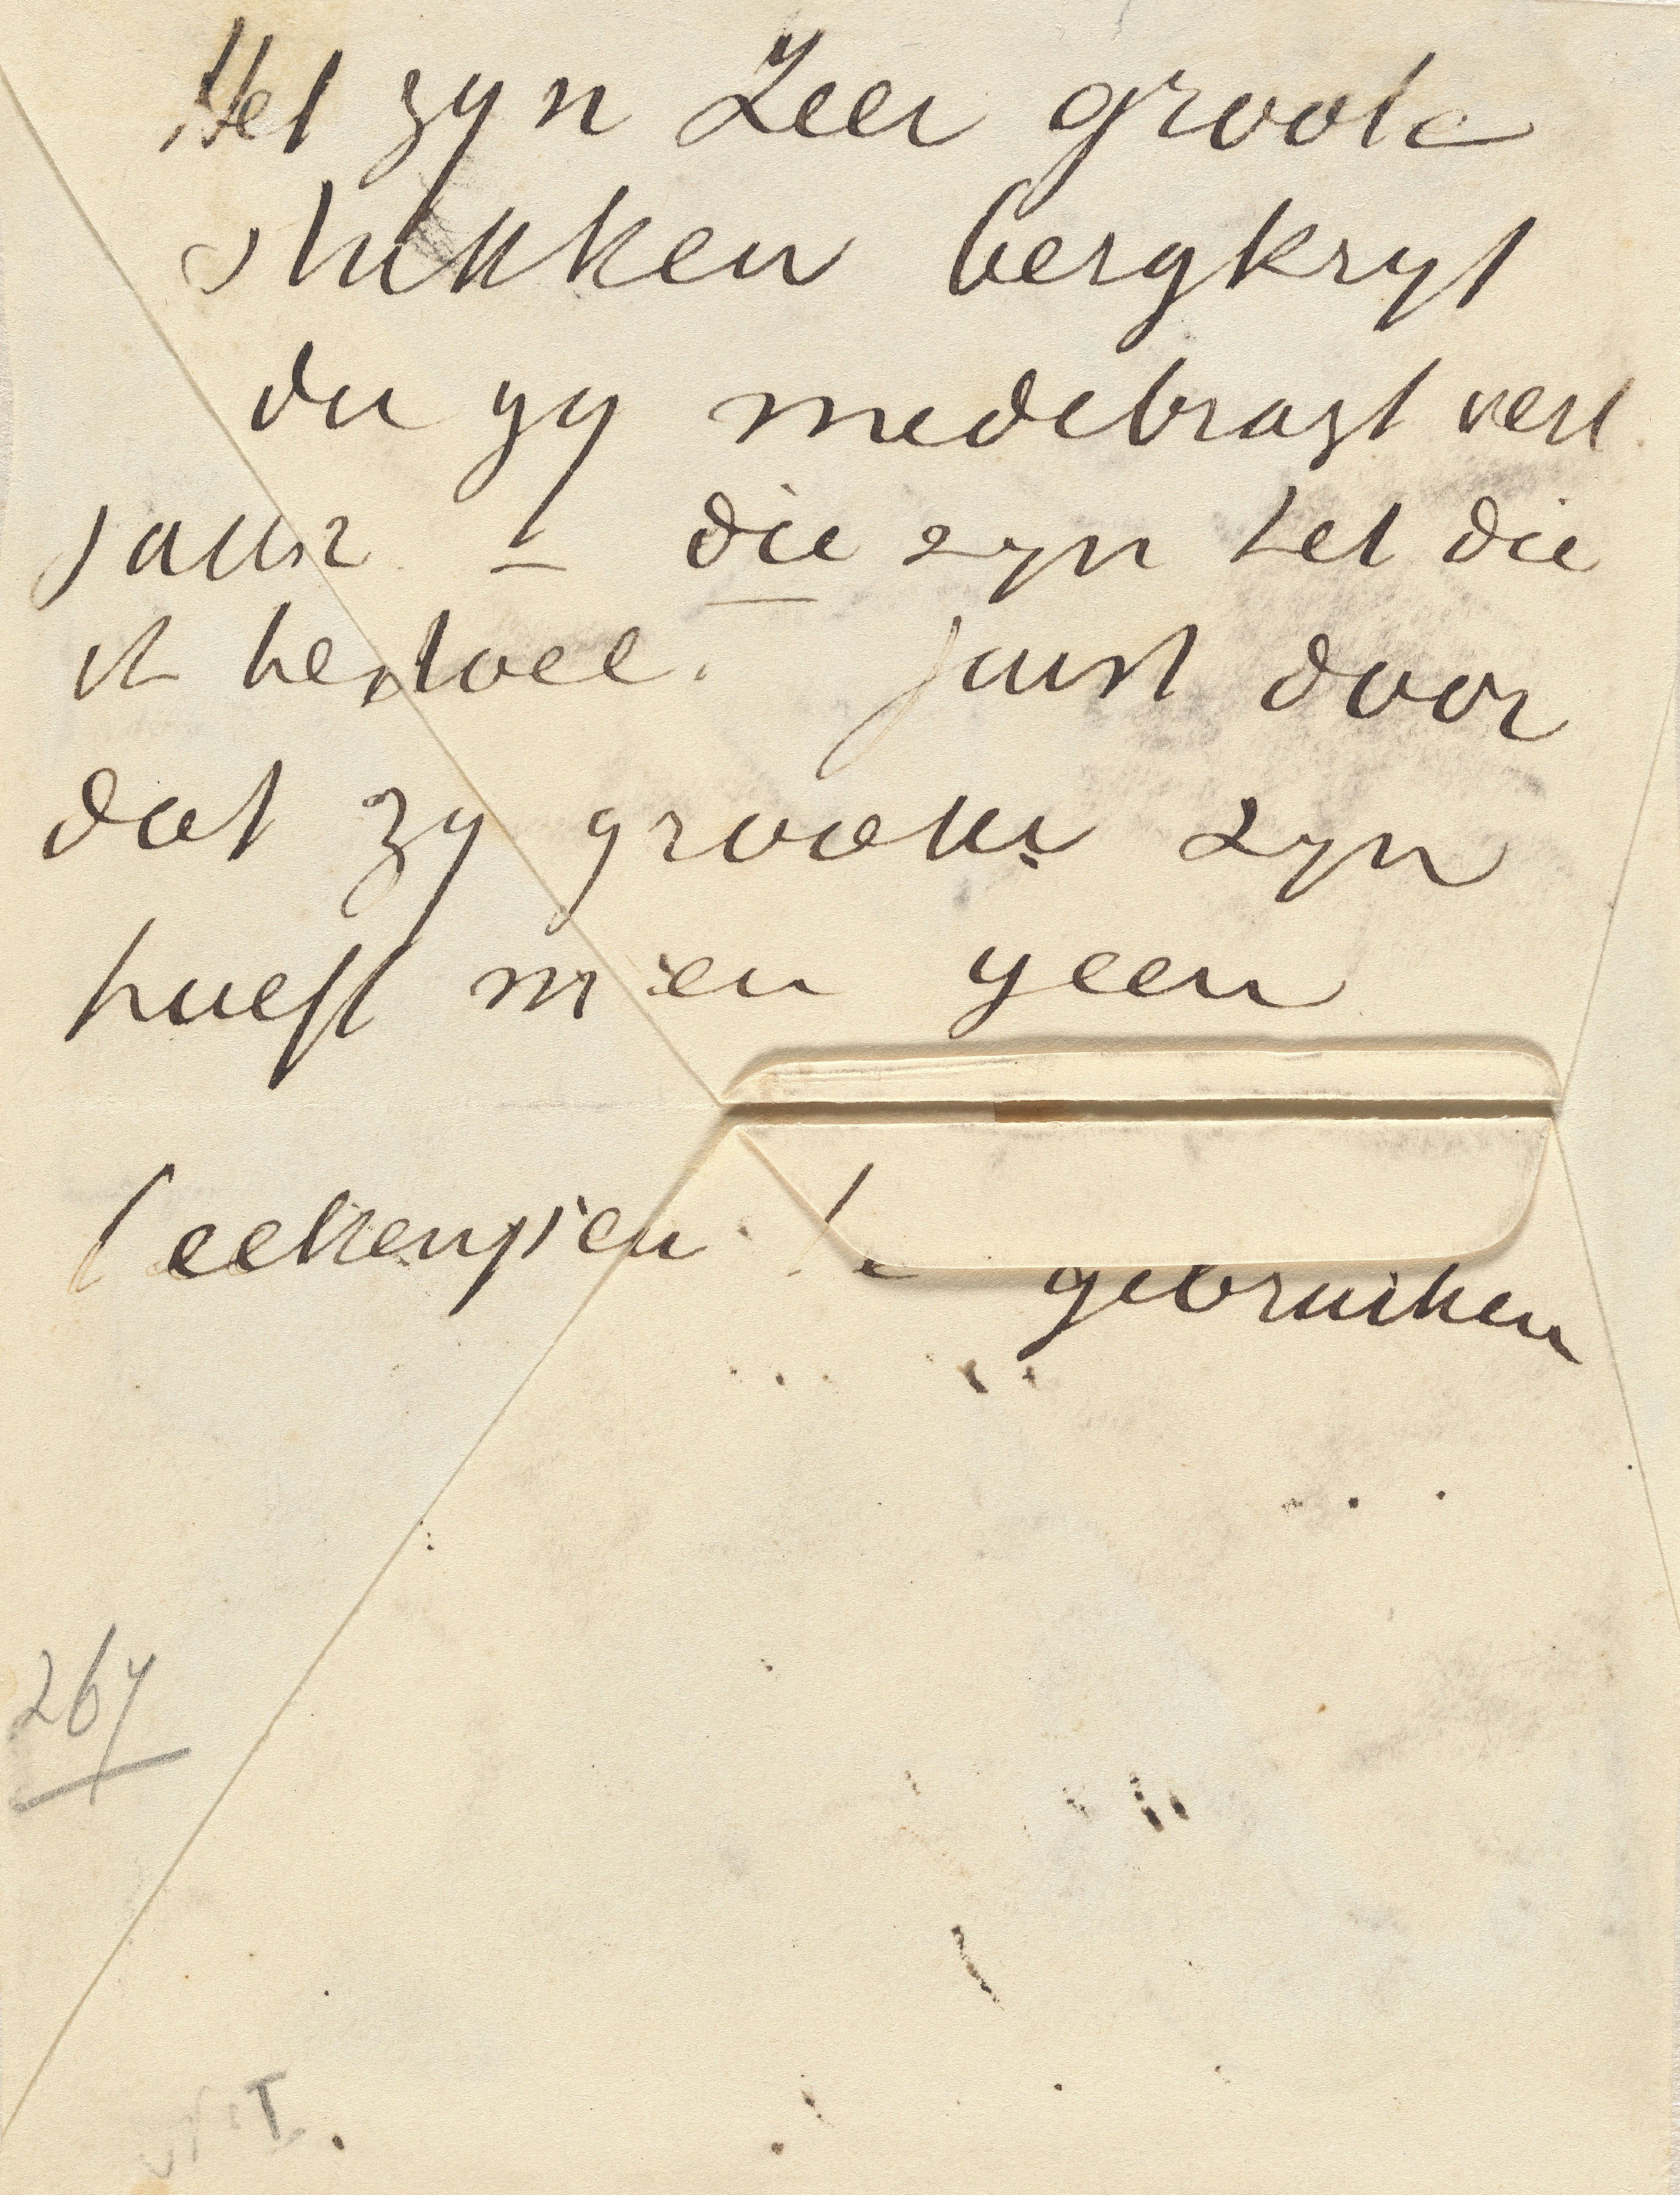 Het zyn Zeer groote
stukken bergkryt
die gy medebragt verl.
jaar – die zyn het die
ik bedoel. juist door
dat zy grooter zyn
hoeft men geen
teekenpen te gebruiken
267
I.